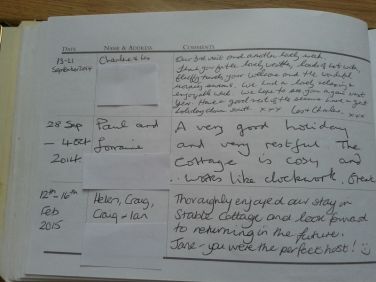 DATE NAME & ADDRESS COMMENTS
13-21
September 2014
Charlie & Leo
Our 3rd visit and another lovely week.
Thank you for the lovely weather, loads of hot water,
fluffy towels, your welcome and the wonderful
We had a lovely relaxing &
enjoyable week. We hope to see you again next
year. Have a good rest of the season
holiday xxx Love Charlie xxx
28 Sep
– 4 Oct
2014
Paul and
Lorraine
A very good holiday
and very restful. The
Cottage is cosy and
works like clockwork. Great
12th – 16th
Feb
2015
Helen, Craig,
Craig & Ian
Thoroughly enjoyed our stay in
Stable Cottage and look forward
to returning in the future.
Jane - you were the perfect host!